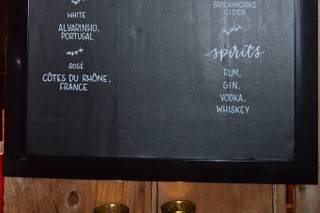 WHITE
ALVARINHO,
PORTUGAL
ROSÉ
CÔTES DU RHÔNE,
FRANCE
BRICKWORKS
CIDER
spirits
RUM,
GIN,
VODKA,
WHISKEY